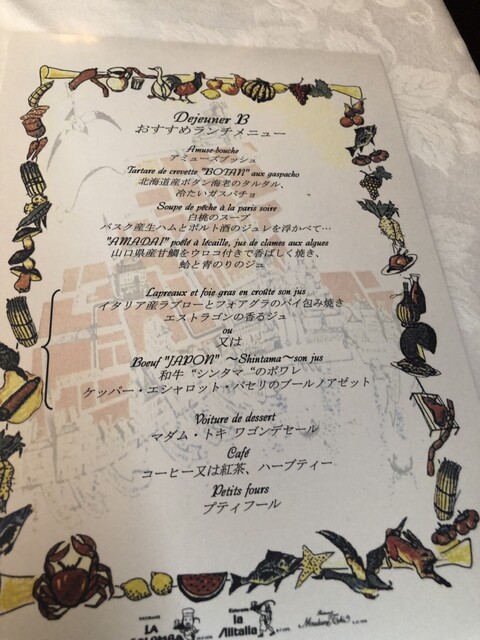 Dejeuner B
おすすめランチメニュー
Amuse-bouche
アミューズブッシュ
Tartare de crevette "BOTAN" aux gaspacho
北海道産ボタン海老のタルタル、
冷たいガスパチョ
Soupe de pêche à la paris soire
白桃のスープ
バスク産生ハムとポルト酒のジュレを浮かべて…
"AMADAI" poêlé à lécaille, jus de clames aux algues
山口県産甘鯛をウロコ付きで香ばしく焼き、
蛤と青のりのジュ
Lapreaux et foie gras en croûte son jus
イタリア産ラブローとフォアグラのパイ包み焼き
エストラゴンの香るジュ
ou
又は
Boeuf "JAPON" ～Shintama～son jus
和牛 "シンタマ "のポワレ
ケッパー・エシャロット・パセリのブールノアゼット
Voiture de dessert
マダム・トキ ワゴンデセール
Café
コーヒー又は紅茶、ハーブティー
Petits fours
プティフール
LA
COLOMBA
la
Alitalia
Madame Toki